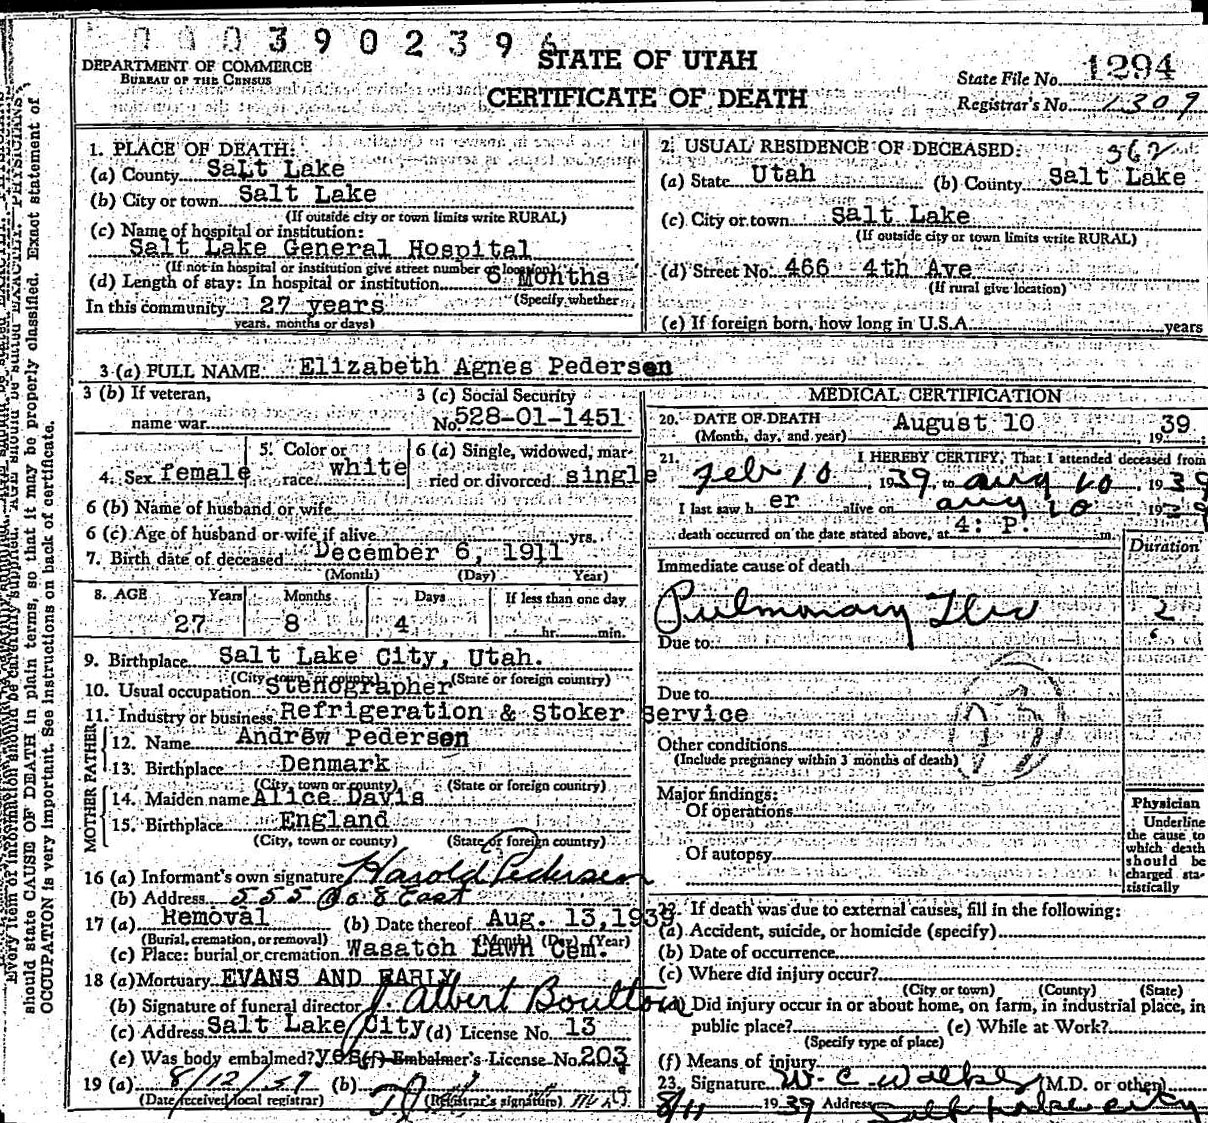 0003902396
STATE OF UTAH
CERTIFICATE OF DEATH
DEPARTMENT OF COMMERCE
BUREAU OF THE CENSUS
State File No. 1294
Registrar's No. 1309
1. PLACE OF DEATH:
(a) County Salt Lake
(b) City or town Salt Lake
(If outside city or town limits write RURAL)
(c) Name of hospital or institution:
Salt Lake General Hospital
(If not in hospital or institution give street number or location)
(d) Length of stay: In hospital or institution 6 Months
(Specify whether
In this community 27 years
years, months or days)
2. USUAL RESIDENCE OF DECEASED: 362
(a) State Utah (b) County Salt Lake
(c) City or town Salt Lake
(If outside city or town limits write RURAL)
(d) Street No. 466 4th Ave
(If rural give location)
(e) If foreign born, how long in U.S.A. years
3 (a) FULL NAME Elizabeth Agnes Pedersen
3 (b) If veteran,
name war
3 (c) Social Security
No. 528-01-1451
4. Sex female
5. Color or
race white
6 (a) Single, widowed, mar-
ried or divorced single
6 (b) Name of husband or wife
6 (c) Age of husband or wife if alive yrs.
7. Birth date of deceased December 6, 1911
(Month) (Day) Year)
8. AGE Years Months Days If less than one day
27 8 4 hr. min.
9. Birthplace Salt Lake City, Utah.
(City, town or county) (State or foreign country)
10. Usual occupation Stenographer
11. Industry or business Refrigeration & Stoker Service
MOTHER FATHER
12. Name Andrew Pedersen
13. Birthplace Denmark
(City, town or county) (State or foreign country)
14. Maiden name Alice Davis
15. Birthplace England
(City, town or county) (State or foreign country)
16 (a) Informant's own signature Harold Pedersen
(b) Address 555 So 8 East
17 (a) Removal (b) Date thereof Aug. 13,1939
(Burial, cremation, or removal) (Month) (Day) (Year)
(c) Place: burial or cremation Wasatch Lawn Cem.
18 (a) Mortuary EVANS AND EARLY
(b) Signature of funeral director J. Albert Boulton
(c) Address Salt Lake City (d) License No. 13
(e) Was body embalmed? yes (f) Embalmer's License No. 203
19 (a) 8/12/39 (b)
(Date received local registrar) (Registrar's signature)
MEDICAL CERTIFICATION
20. DATE OF DEATH August 10 39
(Month, day, and year) 19 ;
21. I HEREBY CERTIFY, That I attended deceased from
Feb 10, 1939, to Aug 10, 1939
I last saw h er alive on Aug 10 1939
death occurred on the date stated above, at 4: P. m.
Duration
Immediate cause of death
Pulmonary Tbc 2
Due to
Due to
Other conditions
(Include pregnancy within 3 months of death)
13
Major findings:
Of operations
Of autopsy
Physician
Underline
the cause to
which death
should be
charged sta-
tistically
22. If death was due to external causes, fill in the following:
(a) Accident, suicide, or homicide (specify)
(b) Date of occurrence
(c) Where did injury occur?
(City or town) (County) (State)
(d) Did injury occur in or about home, on farm, in industrial place, in
public place? (e) While at Work?
(Specify type of place)
(f) Means of injury
23. Signature W. C. Walker (M.D. or other)
8/11 1939 Address Salt Lake City
should state CAUSE OF DEATH in plain terms, so that it may be properly classified. Exact statement of
OCCUPATION is very important. See instructions on back of certificate.